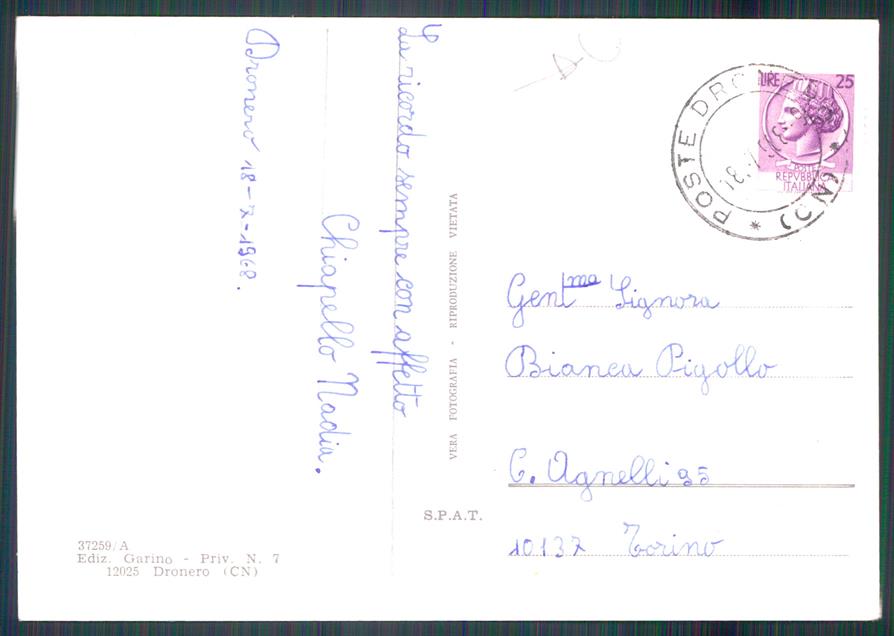 Dronero 18-7-1968.
La ricordo sempre con affetto
Chiapello Nadia.
VERA FOTOGRAFIA - RIPRODUZIONE VIETATA
S.P.A.T.
37259/A
Ediz. Garino - Priv. N. 7
12025 Dronero (CN)
LIRE 25
POSTE
REPVBBLICA
ITALIANA
POSTE DRONERO * (CN) *
Gent.ma Signora
Bianca Pigollo
C. Agnelli 95
10137 Torino